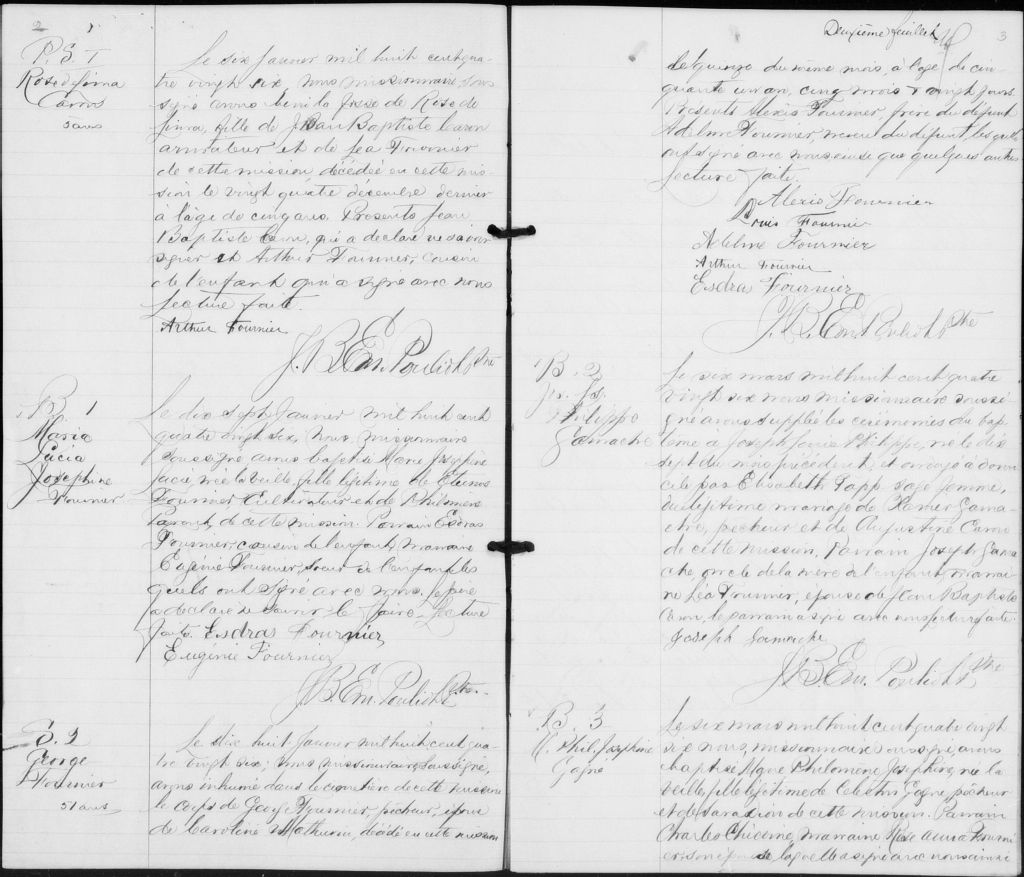 2
P. S. 1
Rose de Lima
Caron
5 ans
Le six Janvier mil huit cent qua-
tre vingt six, nous missionnaire sous
signé avons béni la fosse de Rose de
Lima, fille de Jean Baptiste Caron
armateur et de Léa Fournier
de cette mission décédée en cette mis-
sion le vingt quatre décembre dernier
a l'âge de cinq ans. Présents Jean
Baptiste Caron, qui a déclaré ne savoir
signer et Arthur Fournier, cousin
de l'enfant qui a signé avec nous
Lecture faite.
Arthur Fournier
J. B. Em. Pouliot Ptre
B. 1
Marie
Lucia
Josephine
Fournier
Le dix sept Janvier mil huit cent
quatre vingt six, nous missionnaire
soussigné avons baptisé Marie Josephine
Lucie, née la veille, fille légitime de
Fournier, Cultivateur et de Philomène
de cette mission. Parrain Esdras
Fournier, cousin de l'enfant, marraine
Eugénie Fournier, soeur de l'enfant les
quels ont signé avec nous, le père
a déclaré ne savoir le faire. Lecture
faite. Esdras Fournier
Eugénie Fournier
J. B. Em. Pouliot Ptre.
S. 2
George
Fournier
51 ans
Le dix huit Janvier mil huit cent qua-
tre vingt six, nous missionnaire, soussigné,
avons inhumé dans le cimetière de cette mission
le corps de George Fournier, pêcheur, époux
de Caroline Mathurin, décédé en cette mission
Deuxième feuillet
3
le quinze du même mois, à l'age de cin-
quante un an, cinq mois & vingt jours
Présents Alexis Fournier, frère du défunt
Adelme Fournier, neveu du défunt, lesquels
ont signé avec nous ainsi que quelques autres
Lecture faite.
Alexis Fournier
Louis Fournier
Adelme Fournier
Arthur Fournier
Esdras Fournier
J. B. Em. Pouliot Ptre
B. 2
Jos. Ls.
Philippe
Gamache
Le six mars mil huit cent quatre
vingt six nous missionnaire soussi-
gné avons suppléé les cérémonies du bap-
tême a Joseph Louis Philippe, né le dix
sept du mois précédent, et ondoyé à domi
cile par Elisabeth Tapp sage femme,
du légitime mariage de Xavier Gama-
che, pêcheur et de Augustine Caron
de cette mission, Parrain Joseph Gama
che, oncle de la mère de l'enfant, marrai
ne Léa Fournier, épouse de Jean Baptiste
Caron, le parrain a signé avec nous lecture faite.
Joseph Gamache
J. B. Em. Pouliot Ptre
B. 3
M. Phil. Josephine
Gagné
Le six mars mil huit cent quatre vingt
six nous, missionnaire soussigné, avons
baptisé Marie Philomène Josephine, née la
veille, fille légitime de Célestin Gagné, pêcheur
et de de cette mission. Parrain
Charles Chicoine, marraine Rose Anna Fourni
er son épouse laquelle a signé avec nous ainsi